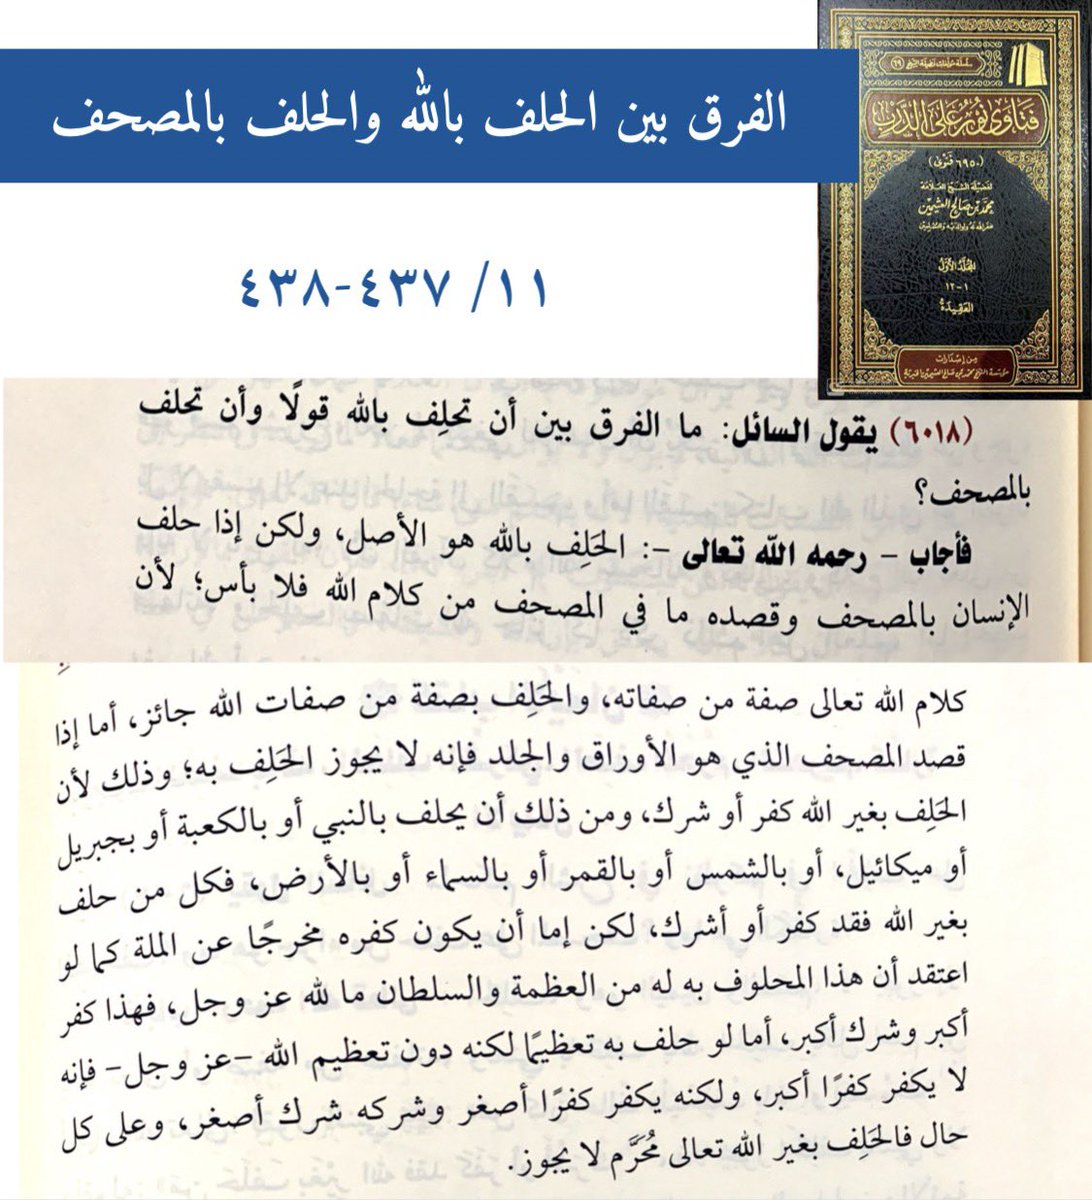 الفرق بين الحلف بالله والحلف بالمصحف
١١/ ٤٣٧-٤٣٨
فتاوى نور على الدرب
(٦٩٥٠ فتوى)
لفضيلة الشيخ العلامة
محمد بن صالح العثيمين
غفر الله له ولوالديه وللمسلمين
المجلد الأول
١-١٢
العقيدة
من إصدارات
(٦٠١٨) يقول السائل: ما الفرق بين أن تحلِف بالله قولًا وأن تحلف
بالمصحف؟
فأجاب – رحمه الله تعالى –: الحَلِف بالله هو الأصل، ولكن إذا حلف
الإنسان بالمصحف وقصده ما في المصحف من كلام الله فلا بأس؛ لأن
كلام الله تعالى صفة من صفاته، والحَلِف بصفة من صفات الله جائز، أما إذا
قصد المصحف الذي هو الأوراق والجلد فإنه لا يجوز الحَلِف به؛ وذلك لأن
الحَلِف بغير الله كفر أو شرك، ومن ذلك أن يحلف بالنبي أو بالكعبة أو بجبريل
أو ميكائيل، أو بالشمس أو بالقمر أو بالسماء أو بالأرض، فكل من حلف
بغير الله فقد كفر أو أشرك، لكن إما أن يكون كفره مخرجًا عن الملة كما لو
اعتقد أن هذا المحلوف به له من العظمة والسلطان ما لله عز وجل، فهذا كفر
أكبر وشرك أكبر، أما لو حلف به تعظيمًا لكنه دون تعظيم الله –عز وجل– فإنه
لا يكفر كفرًا أكبر، ولكنه يكفر كفرًا أصغر وشركه شرك أصغر، وعلى كل
حال فالحَلِف بغير الله تعالى مُحَرَّم لا يجوز.